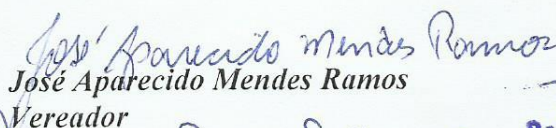 José Aparecido Mendes Ramos
José Aparecido Mendes Ramos
Vereador